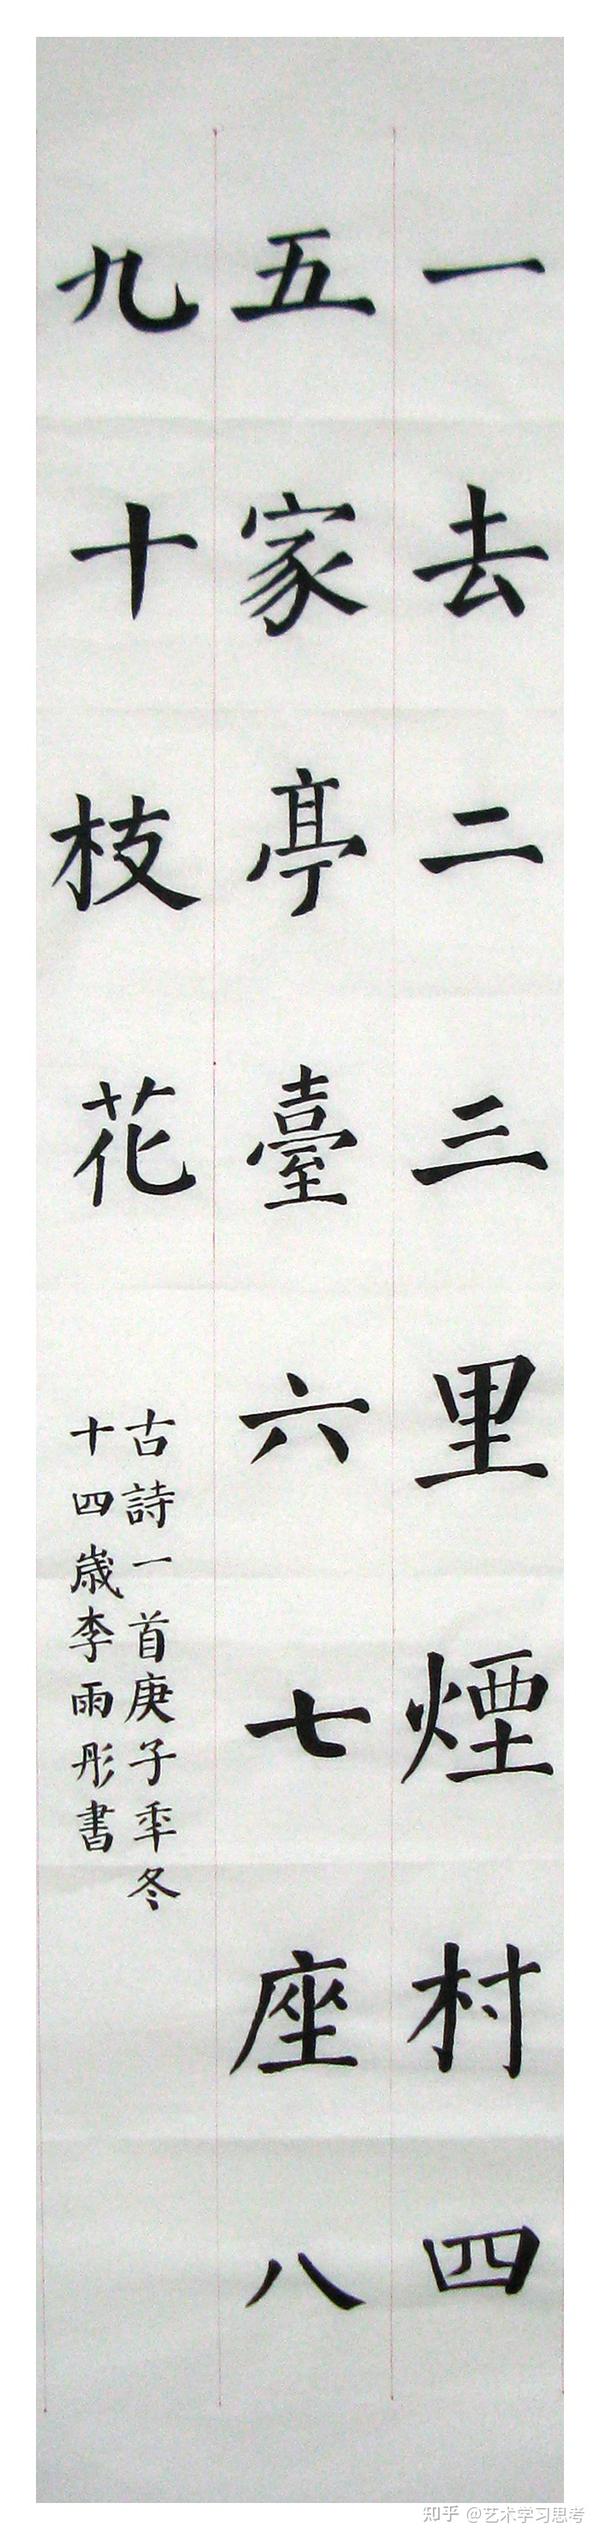 一去二三里煙村四
五家亭臺六七座八
九十枝花
古詩一首庚子秊冬
十四歲李雨彤書
知乎 @艺术学习思考